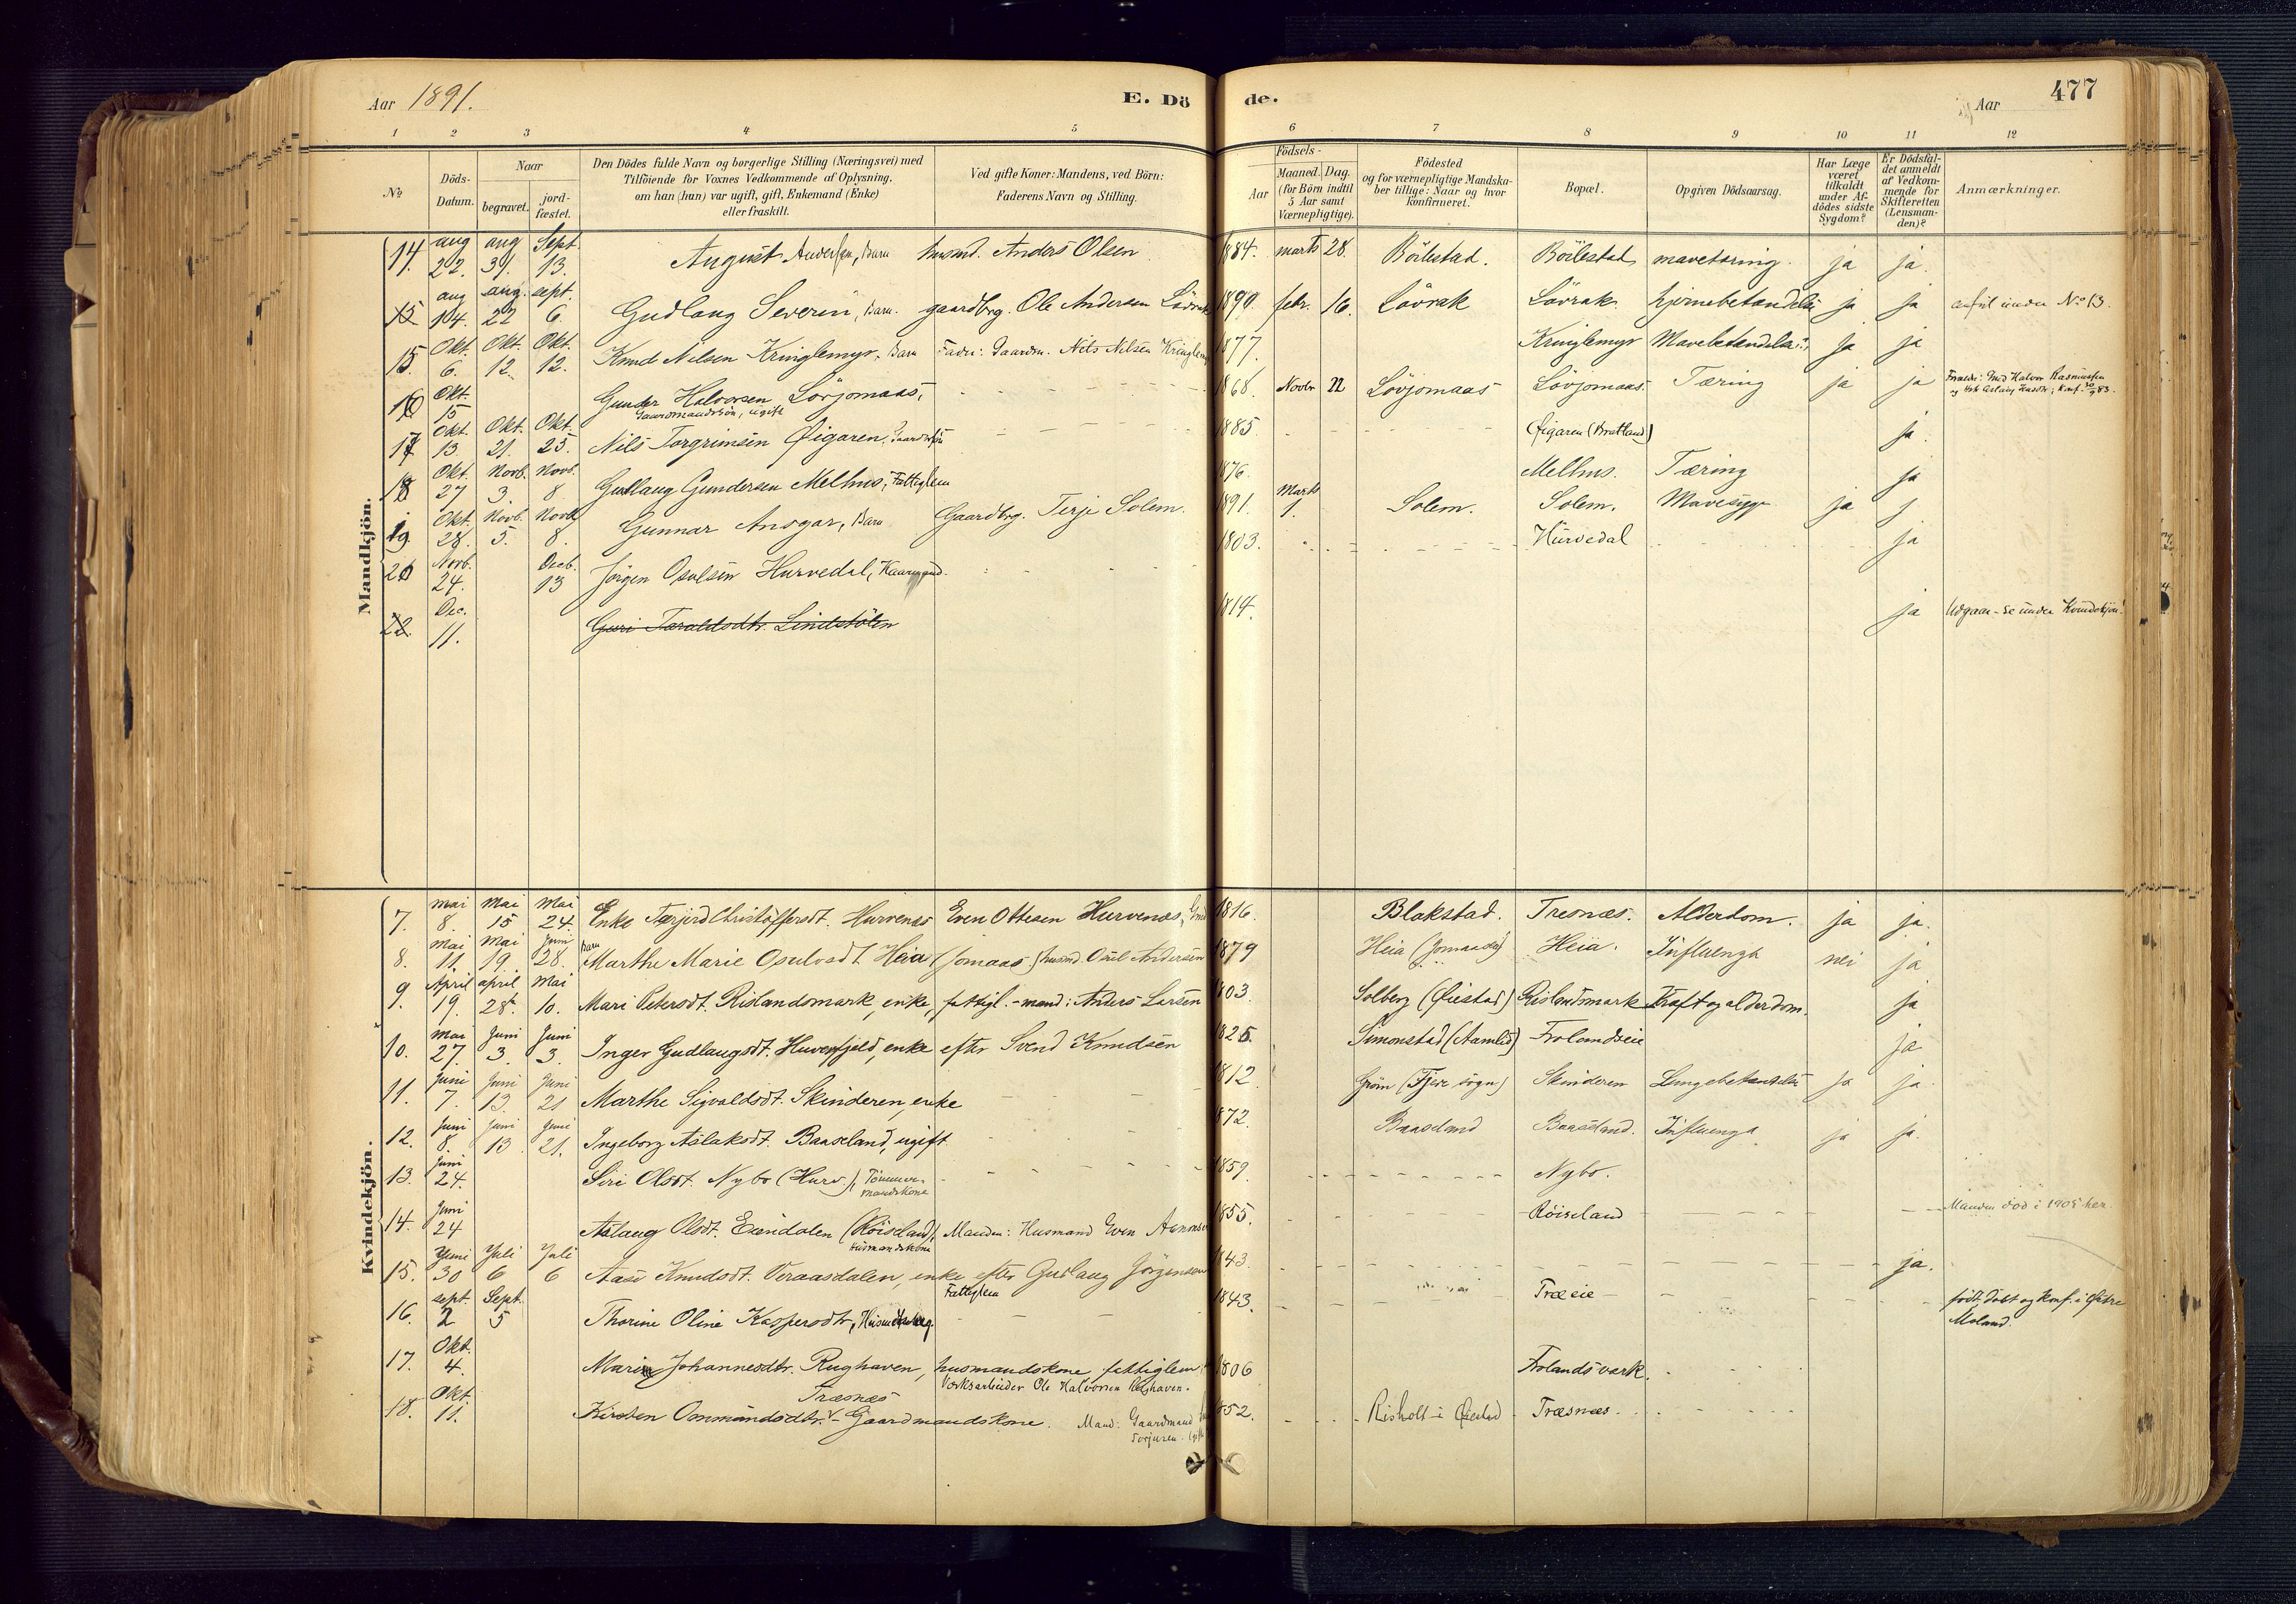 Aar 1891. E. Dö de. Aar 477
1 2 3 4 5 6 7 8 9 10 11 12
No Döds-Datum. Naar begravet. jord-fæstet. Den Dödes fulde Navn og borgerlige Stilling (Næringsvei) med Tilföiende for Voxnes Vedkommende af Oplysning. om han (hun) var ugift, gift, Enkemand (Enke) eller fraskilt. Ved gifte Koner: Mandens, ved Börn: Faderens Navn og Stilling. Födsels- Aar Maaned. Dag. (for Börn indtil 5 Aar samt Værnepligtige). Födested og for værnepligtige Mandska-ber tillige: Naar og hvor konfirmeret. Bopæl. Opgiven Dödsaarsag. Har Læge været tilkaldt under Af-dödes sidste Sygdom? Er Dödsfal-det anmeldt af Vedkom-mende for Skifteretten (Lensman-den)? Anmærkninger.
Mandkjön.
14. aug 22. aug 31. Sept. 13. August Andersen, Barn husmd. Anders Olsen 1884. marts 28. Böilestad. Böilestad mavetæring. ja ja.
15 aug 14. aug. 22 sept. 6. Gudlaug Severin, Barn. gaardbrg. Ole Andersen Lövrak 1890 febr. 16. Lövrak Lövrak hjernebetændelse ja ja anfört under No 13.
15. Okt. 6. Okt. 12. Okt. 12. Knud Nilsen Kringlemyr, Barn Fader: Gaardm. Nils Nilsen Kringlemyr 1877. Kringlemyr Mavebetændelse ja ja
16 Okt. 15 Gunder Halvorsen Lövjomaas, Gaardmandssön, ugift 1868. Novbr 22 Lövjomaas Lövjomaas. Tæring ja ja Forældr: Gmd Halvor Rasmussen
17 Okt. 13. Okt. 21. Okt. 25. Nils Torgrimsen Øigaren, 1885 Øigaren (Bratland) ja.
18 Okt. 27 Novb. 3. Novb. 8. Gudlaug Gundersen Melhus, Fattiglem 1876. Melhus. Tæring ja
19. Okt. 28. Novb. 5. Novb. 8. Gunnar Ansgar, Barn Gaardbrg. Terje Solem. 1891. Marts 1. Solem. Solem. Mavesyge ja j
20 Novb. 24. Deeb. 13 Jörgen Osulsen Hurvedal, Kaarmand. 1803. Hurvedal ja
22. Dec. 11. Guri Taraldsdtr. Lindstölen 1814. ja Udgaar - se under Kvindekjön!
Kvindekjön.
7. mai 8. Mai 15 Mai 24. Enke Tærjerd Christoffersdt. Hurvenes Even Ottesen Hurvenæs, 1816. Blakstad. Tresnæs. Alderdom. ja ja.
8. Mai 11. Mai 19. Juni 28. Barn Marthe Marie Osulvsdt. Heia (Jomaas) husmd. Osul Andersen 1879 Heia (Jomaas) Heia. Influenza nei ja
9. April 19. april 28. Mai 10. Mari Petersdt. Rislandsmark, enke, fattigl. - mand: Anders Larsen 1803. Solberg (Øiestad) Rislandsmark Kræft og alderdom. ja
10. Mai 27. Juni 3. Juni 3. Inger Gudlaugsdt. Huvesfjeld, enke efter Svend Knudsen 1825. Simonstad (Aamlid) Frolandseie ja
11. Juni 7. Juni 13. Juni 21 Marthe Sigvaldsdt. Skinderen, enke 1812. Gröm (Fjere sogn) Skinderen Lungebetændelse ja ja.
12. Juni 8. Juni 13. Juni 21. Ingeborg Aslaksdt. Baaseland, ugift 1872. Baaseland Baaseland. Influenza ja ja.
13. Juni 24. Siri Olsdt. Nybo (Hurv.), Tömmermandskone 1859. Nybo.
14. Juni 24 Aslaug Olsdt. Eiendalen (Röiseland), Husmandskone Manden: Husmand Even Aanonsen 1855. Röiseland Manden död i 1905 her.
15. Juni 30 Juli 6 Juli 6 Aase Knudsdt. Veraasdalen, enke efter Gudlaug Jörgensen Fattiglem 1843. ja.
16. sept. 2 Sept. 5 Thorine Oline Kaspersdtr, 1843. Træeie födt, döbt og konf. i Østre Moland.
17. Okt. 4. Marie Johannesdtr. Rughaven, husmandskone, fattiglem Værksarbeider Ole Halvorsen Rughaven. 1806 Frolands værk.
18. Okt. 11. Kirsten Ommundsdtr. Træsnæs - Gaardmandskone. Mand: Gaardmand Torjusen. 1852. Risholt i Øiestad Træsnæs.